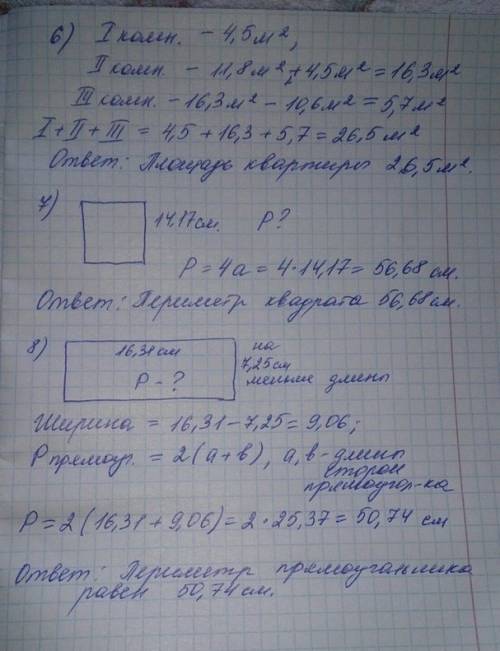 6) I комн. - 4,5 м²,
II комн. - 11,8 м² + 4,5 м² = 16,3 м²
III комн. - 16,3 м² - 10,6 м² = 5,7 м²
I + II + III = 4,5 + 16,3 + 5,7 = 26,5 м²
Ответ: Площадь квартиры 26,5 м².
7) 14,17 см. P?
P = 4a = 4·14,17 = 56,68 см.
Ответ: Периметр квадрата 56,68 см.
8) 16,31 см на
P - ? 7,25 см
меньше длины
Ширина = 16,31 - 7,25 = 9,06;
P прямоуг. = 2(a+b), a, b - длины
сторон
прямоугол-ка
P = 2(16,31 + 9,06) = 2·25,37 = 50,74 см
Ответ: Периметр прямоугольника
равен 50,74 см.